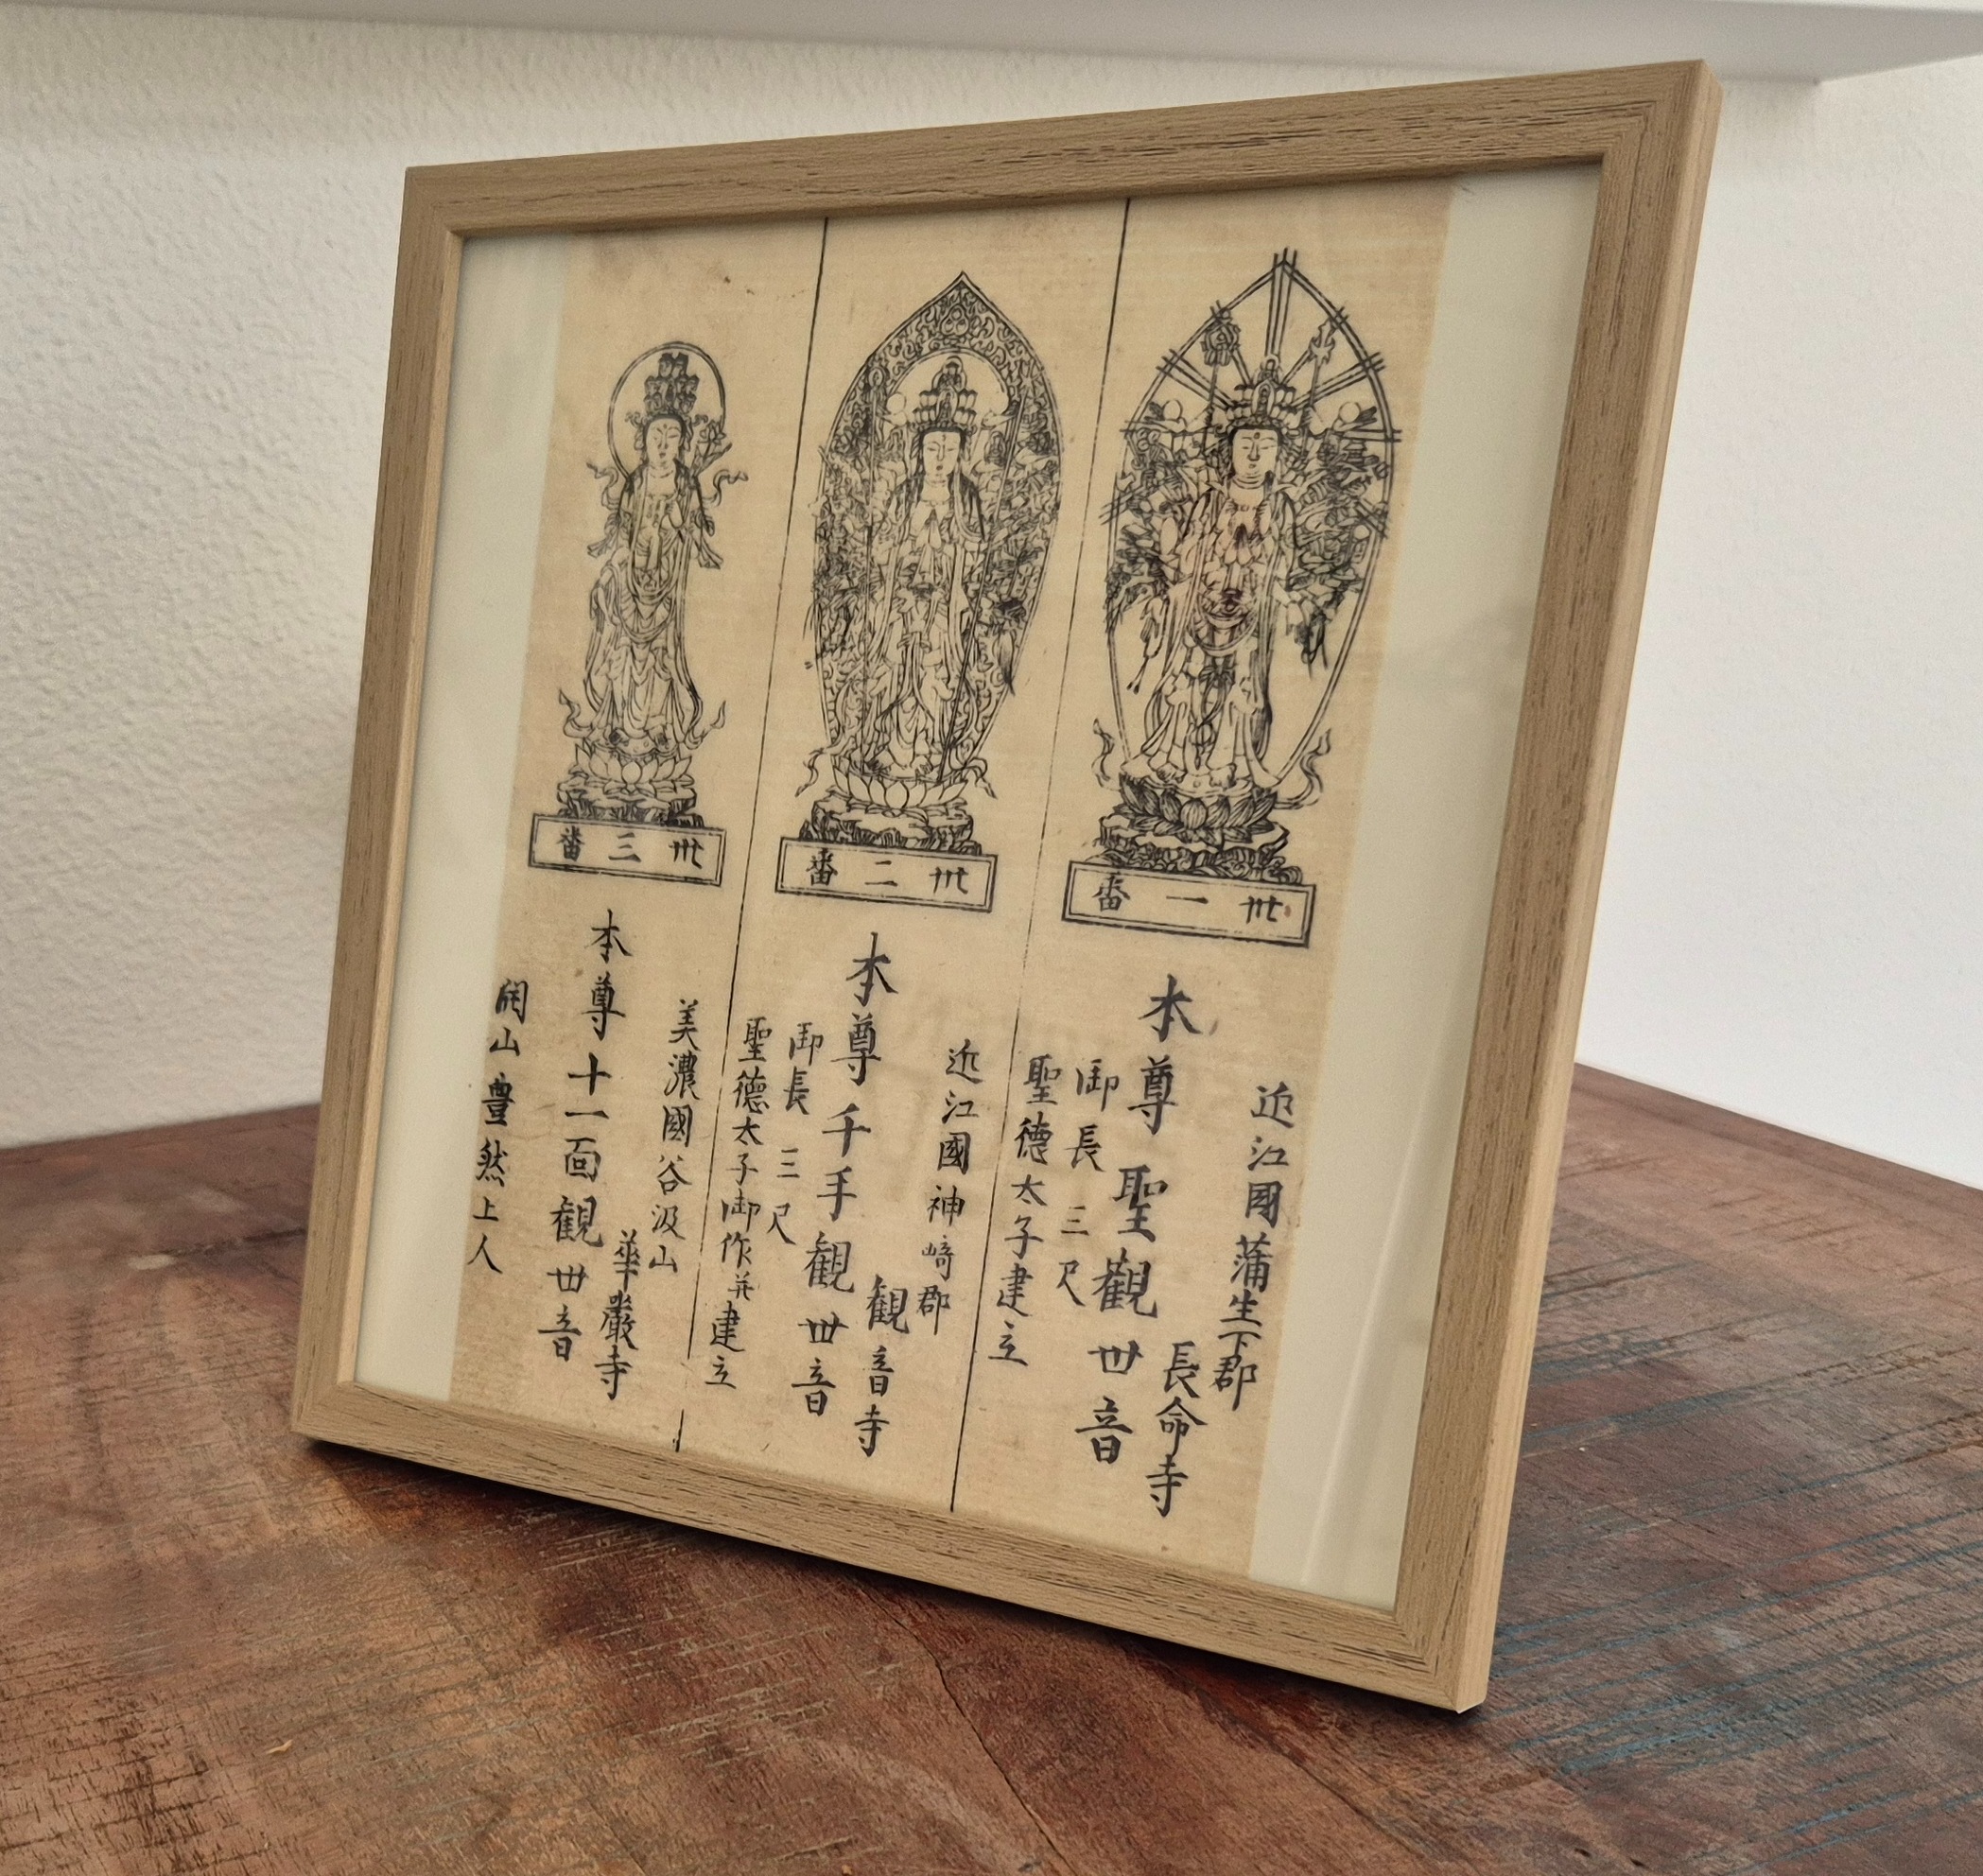 卅一番
近江國蒲生下郡
長命寺
本尊聖觀世音
御長三尺
聖德太子建立
卅二番
近江國神﨑郡
観音寺
本尊千手観世音
御長三尺
聖德太子御作并建立
卅三番
美濃國谷汲山
華嚴寺
本尊十一面観世音
開山豊然上人